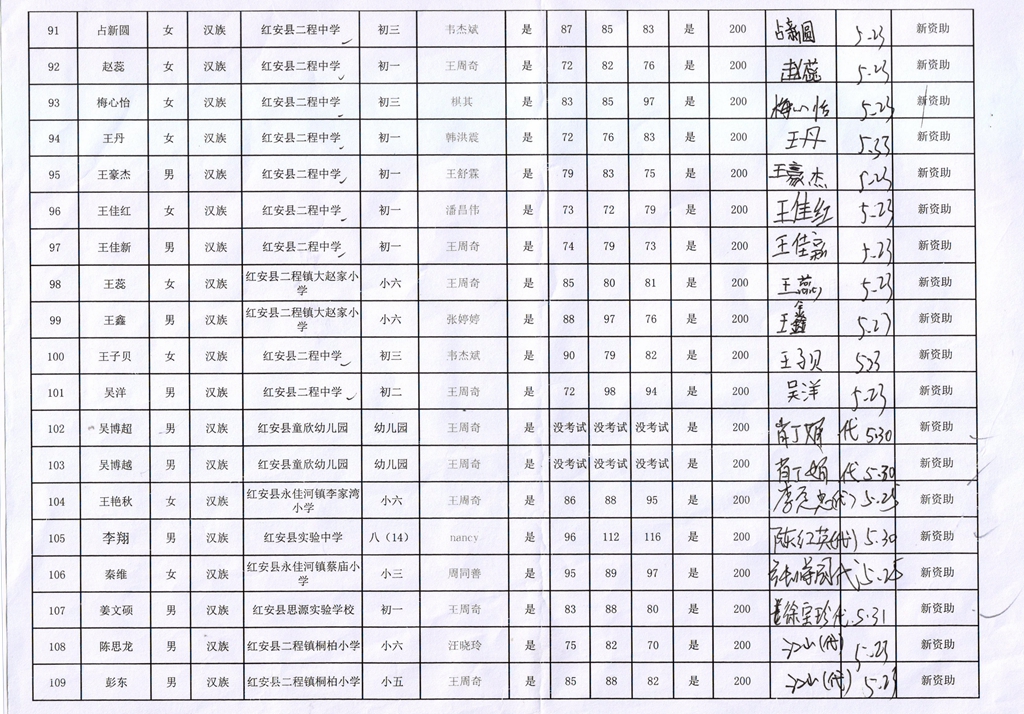 91 占新圆 女 汉族 红安县二程中学 初三 韦杰斌 是 87 85 83 是 200 占新圆 5.23 新资助
92 赵蕊 女 汉族 红安县二程中学 初一 王周奇 是 72 82 76 是 200 赵蕊 5.23 新资助
93 梅心怡 女 汉族 红安县二程中学 初三 棋其 是 83 85 97 是 200 梅心怡 5.23 新资助
94 王丹 女 汉族 红安县二程中学 初一 韩洪震 是 72 76 83 是 200 王丹 5.33 新资助
95 王豪杰 男 汉族 红安县二程中学 初一 王舒霖 是 79 83 75 是 200 王豪杰 5.23 新资助
96 王佳红 女 汉族 红安县二程中学 初一 潘昌伟 是 73 72 79 是 200 王佳红 5.23 新资助
97 王佳新 男 汉族 红安县二程中学 初一 王周奇 是 74 79 73 是 200 王佳新 5.23 新资助
98 王蕊 女 汉族 红安县二程镇大赵家小学 小六 王周奇 是 85 80 81 是 200 王蕊 5.23 新资助
99 王鑫 男 汉族 红安县二程镇大赵家小学 小六 张婷婷 是 88 97 76 是 200 王鑫 5.23 新资助
100 王子贝 女 汉族 红安县二程中学 初三 韦杰斌 是 90 79 82 是 200 王子贝 523 新资助
101 吴洋 男 汉族 红安县二程中学 初二 王周奇 是 72 98 94 是 200 吴洋 5.23 新资助
102 吴博超 男 汉族 红安县童欣幼儿园 幼儿园 王周奇 是 没考试 没考试 没考试 是 200 肖丁娟 代 5.30 新资助
103 吴博越 男 汉族 红安县童欣幼儿园 幼儿园 王周奇 是 没考试 没考试 没考试 是 200 肖丁娟 代 5.30 新资助
104 王艳秋 女 汉族 红安县永佳河镇李家湾小学 小六 王周奇 是 86 88 95 是 200 (代) 5.25 新资助
105 李翔 男 汉族 红安县实验中学 八（14） nancy 是 96 112 116 是 200 陈红英(代) 5.30 新资助
106 秦维 女 汉族 红安县永佳河镇蔡庙小学 小三 周同善 是 95 89 97 是 200 代 5.25 新资助
107 姜文硕 男 汉族 红安县思源实验学校 初一 王周奇 是 83 88 80 是 200 徐宝珍代 5.31 新资助
108 陈思龙 男 汉族 红安县二程镇桐柏小学 小六 汪晓玲 是 75 82 70 是 200 (代) 5.23 新资助
109 彭东 男 汉族 红安县二程镇桐柏小学 小五 王周奇 是 85 88 82 是 200 (代) 5.23 新资助